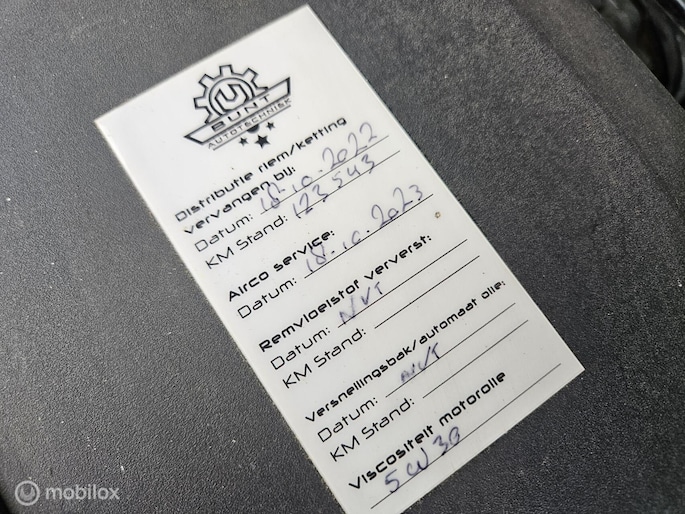 BUNT
AUTOTECHNISK
Distributie riem/ketting
vervangen bij:
Datum: 18-10-2022
KM Stand: 123543
Airco service:
Datum: 18-10-2023
Remvloeistof ververst:
Datum: NVT
KM Stand:
Versnellingsbak/automaat olie:
Datum: NVT
KM Stand:
Viscositeit motorolie
5W30
mobilox